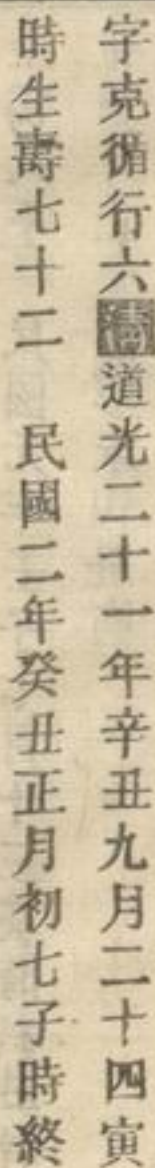 字克循行六清道光二十一年辛丑九月二十四寅
時生壽七十二　民國二年癸丑正月初七子時終